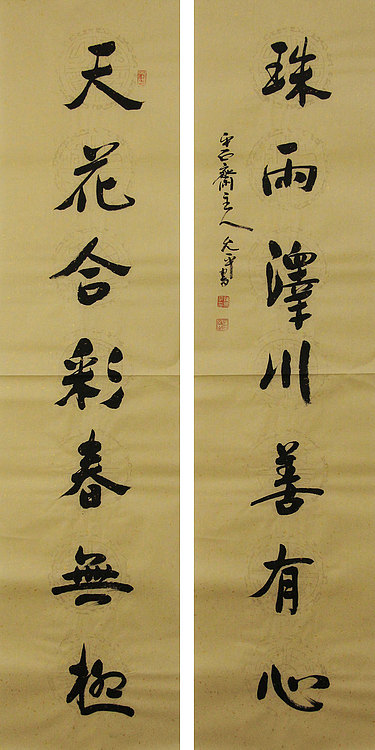 珠雨澤川善有心
齋主人允平書
天花合彩春無極